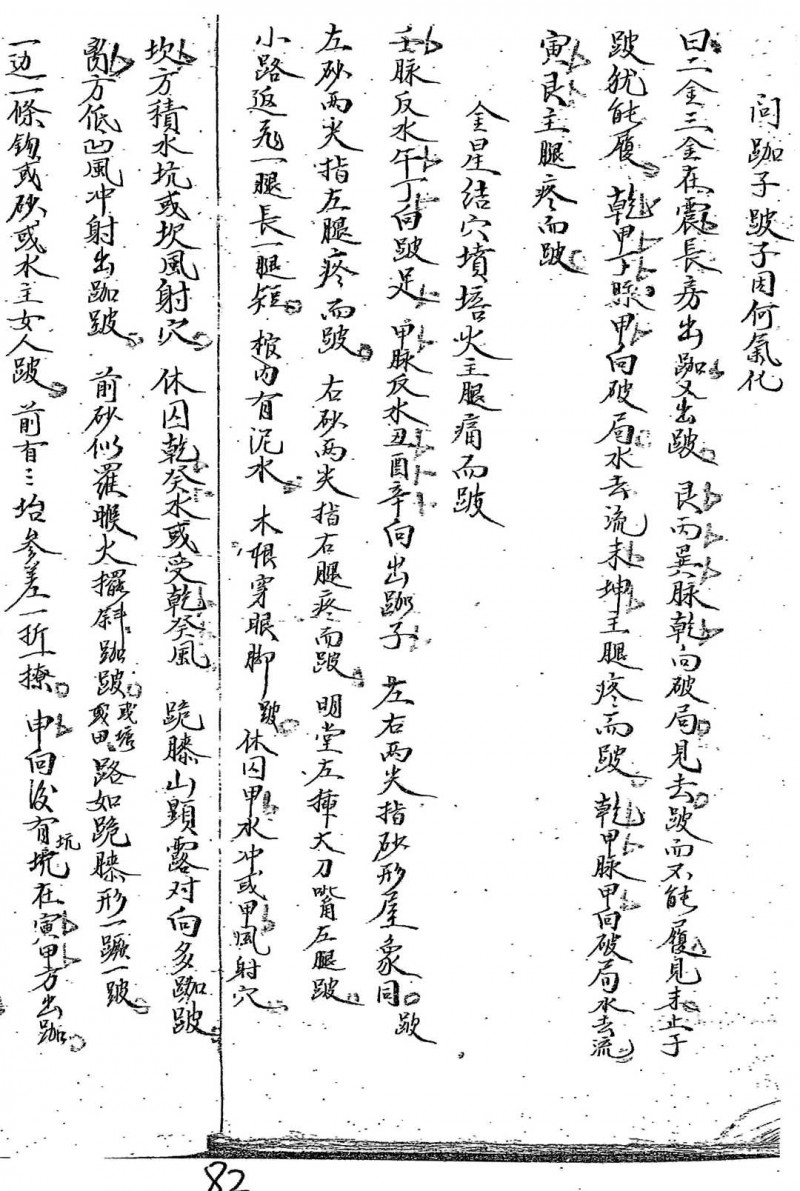 问跏子跛子因何氣化
曰二金三金在震長房出跏又出跛。艮丙巽脉乾向破局見去跛而不能履見未止于
跛犹能履。乾甲丁脉甲向破局水去流未坤主腿疼而跛。乾甲脉甲向破局水去流
寅艮主腿疼而跛。
金星结穴墳培火主腿痛而跛
壬脉反水午丁向跛足。甲脉反水丑酉辛向出跏子。左右两尖指砂形屋象同。跛
左砂两尖指左腿疼而跛。右砂两尖指右腿疼而跛。明堂左挿大刀嘴左腿跛。
小路返飛一腿長一腿短。棺内有泥水。木根穿眼脚跛。休囚甲水冲或甲風射穴
坎方積水坑或坎風射穴。休囚乾癸水或受乾癸風 跪膝山顕露对向多跏跛。
离方低凹風冲射出跏跛。前砂似羅睺火擺斜跏跛。或塘或田路如跪膝形一蹶一跛。
一边一條鈎或砂或水主女人跛。前有三抬参差一折一撩。申向後有坑境在寅甲方出跏。
82